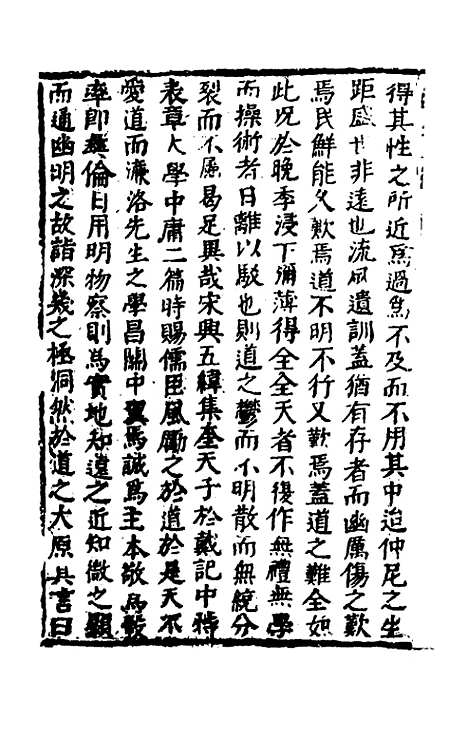 得其性之所近為過為不及而不用其中迨仲尼之生
距盛世非遠也流風遺訓蓋猶有存者而幽厲傷之歎
焉民鮮能久歎焉道不明不行又歎焉蓋道之難全如
此况於晚季浸下彌薄得全全天者不復作無禮無學
而操術者日離以駁也則道之鬱而不明散而無統分
裂而不屬曷足異哉宋興五緯集奎天子於戴記中特
表章大學中庸二篇時賜儒臣風勵之於道於是天不
愛道而濂洛先生之學昌關中翼焉誠為主本敬為
率即彝倫日用明物察則為實地知遠之近知微之顯
而通幽明之故詣深幾之極洞然於道之大原其言曰